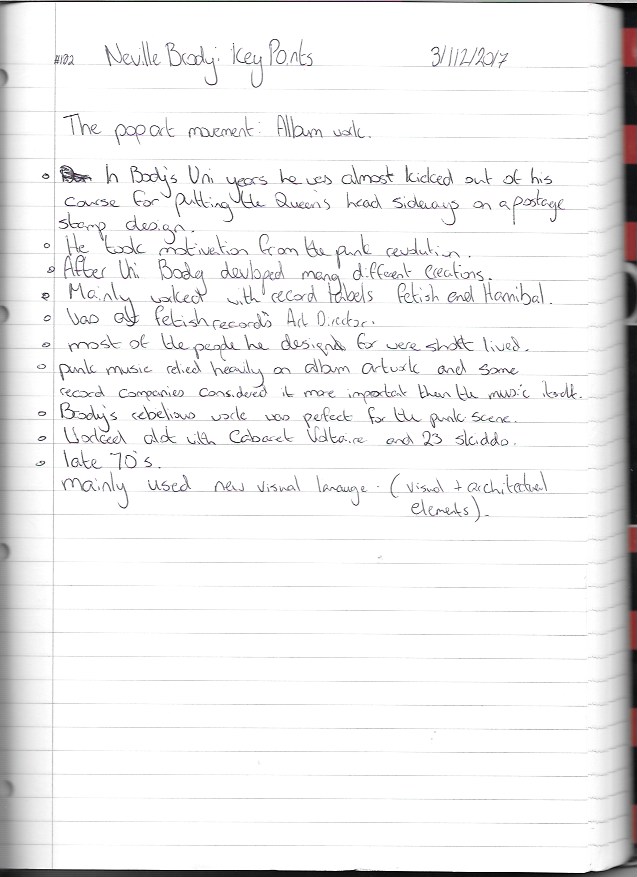 #102 Neville Brody: Key Ponts 31/12/2017
The pop art movement: Album work.
In Brody's Uni years he was almost kicked out of his
course for putting the Queens head sideways on a postage
stamp design.
He took motivation from the punk revolution.
After Uni Brody devloped many different creations.
Mainly worked with record labels Fetish and Hannibal.
Was fetish record's Art Director.
most of the people he designed for were short lived.
punk music relied heavily on album artwork and some
record companies considered it more important then the music itself.
Brody's rebelious work was perfect for the punk scene.
Worked alot with Cabaret Voltaire and 23 skiddo.
late 70's.
mainly used new visual lanauge. (visual + architectual
elements).